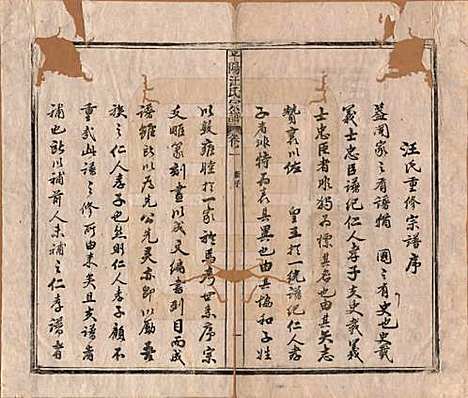 汪氏重修宗譜序
蓋聞家之有譜猶 國之有史也史載
義士忠臣譜紀仁人孝子支史載義
士忠臣者非獨為標其也由其矢志
贊襄以佐 皇王於一統譜紀仁人孝
子者非特為表其異也由其協和子姓
平陽汪氏宗譜 卷一
以敦雍睦於一家於焉考世系序宗
支雕篆刻畫以成文編書列目而成
譜雖所以為先公先靈亦即以勵吾
族之仁人孝子也然則仁人孝子顧不
重哉此譜之修所由來矣且夫譜者
補也所以補前人未補之仁孝譜者